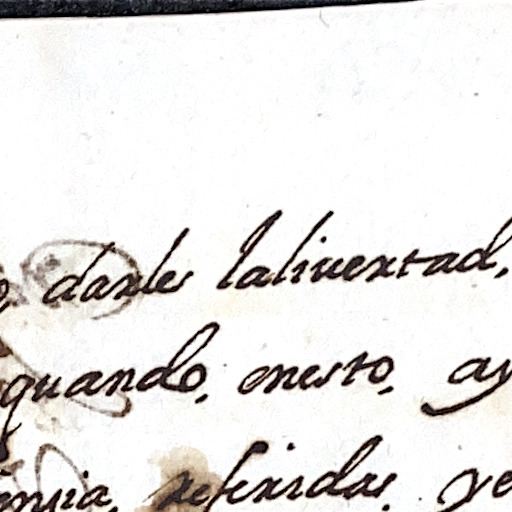 darles lalivertad,
quando, enesto, ay
referidas, ye